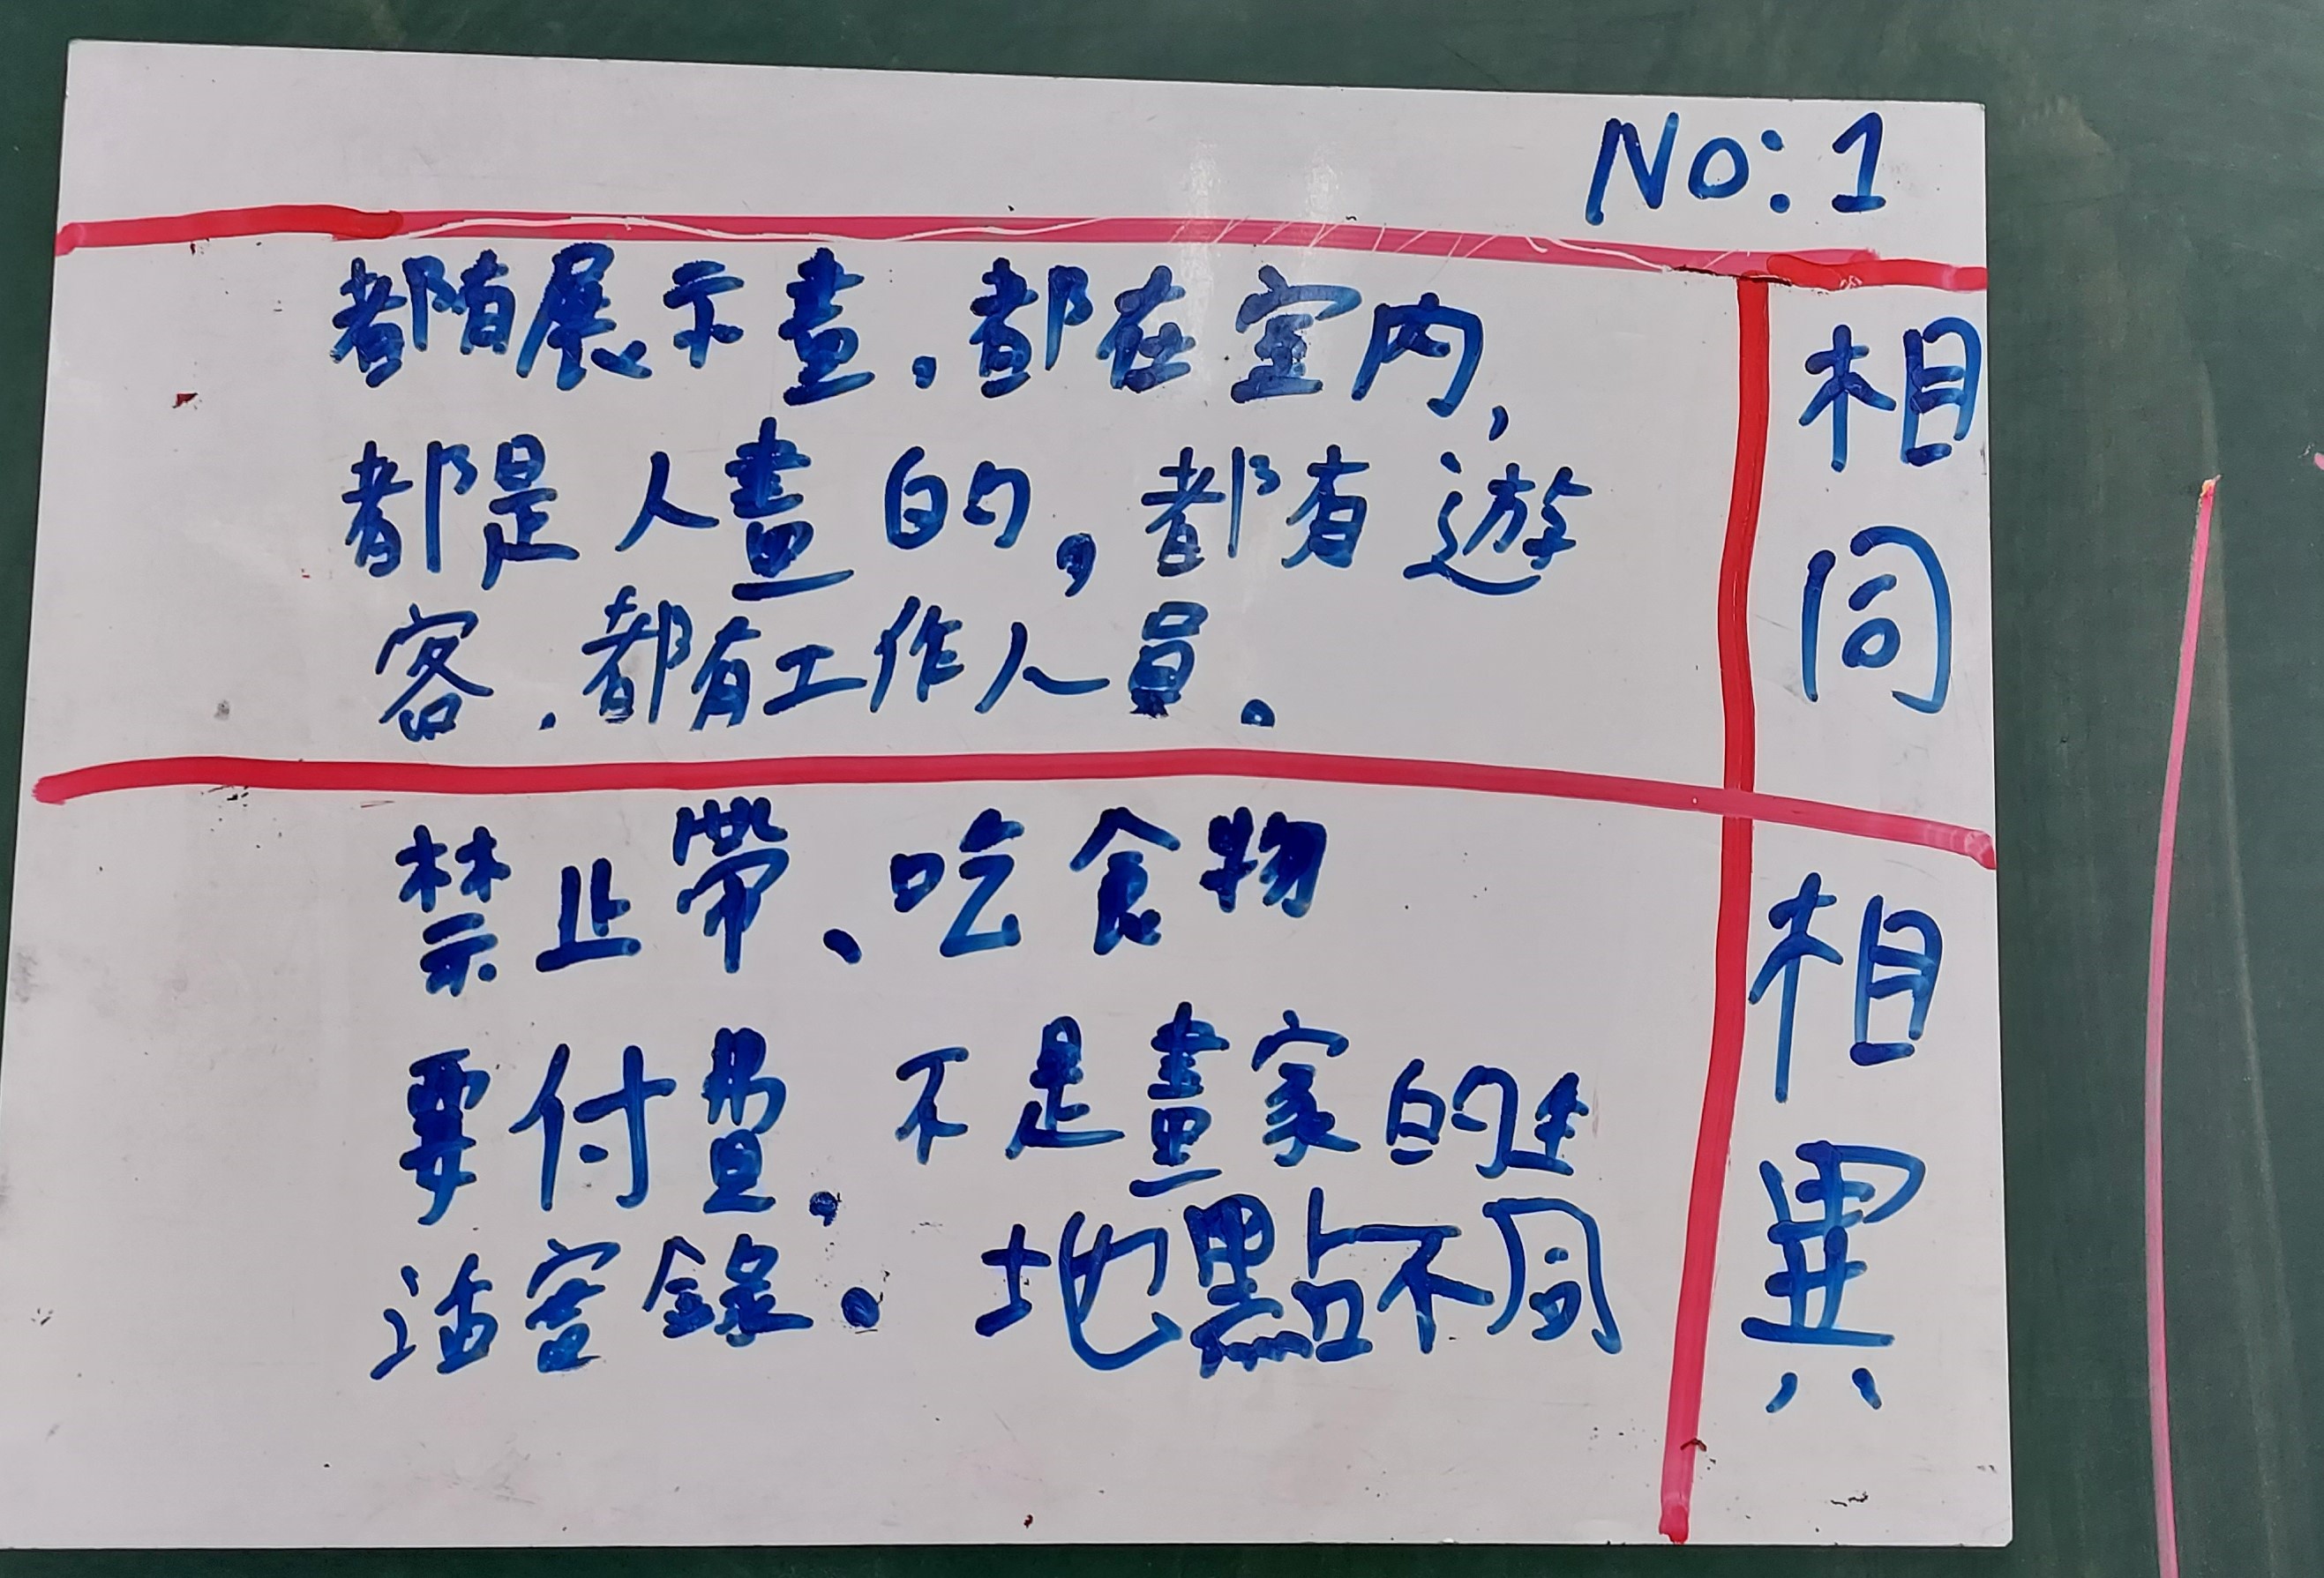 No:1
相同
都有展示畫.都在室內,
都是人畫的,都有遊
客.都有工作人員.
相異
禁止帶、吃食物
要付費.不是畫家的生
活實錄.地點不同